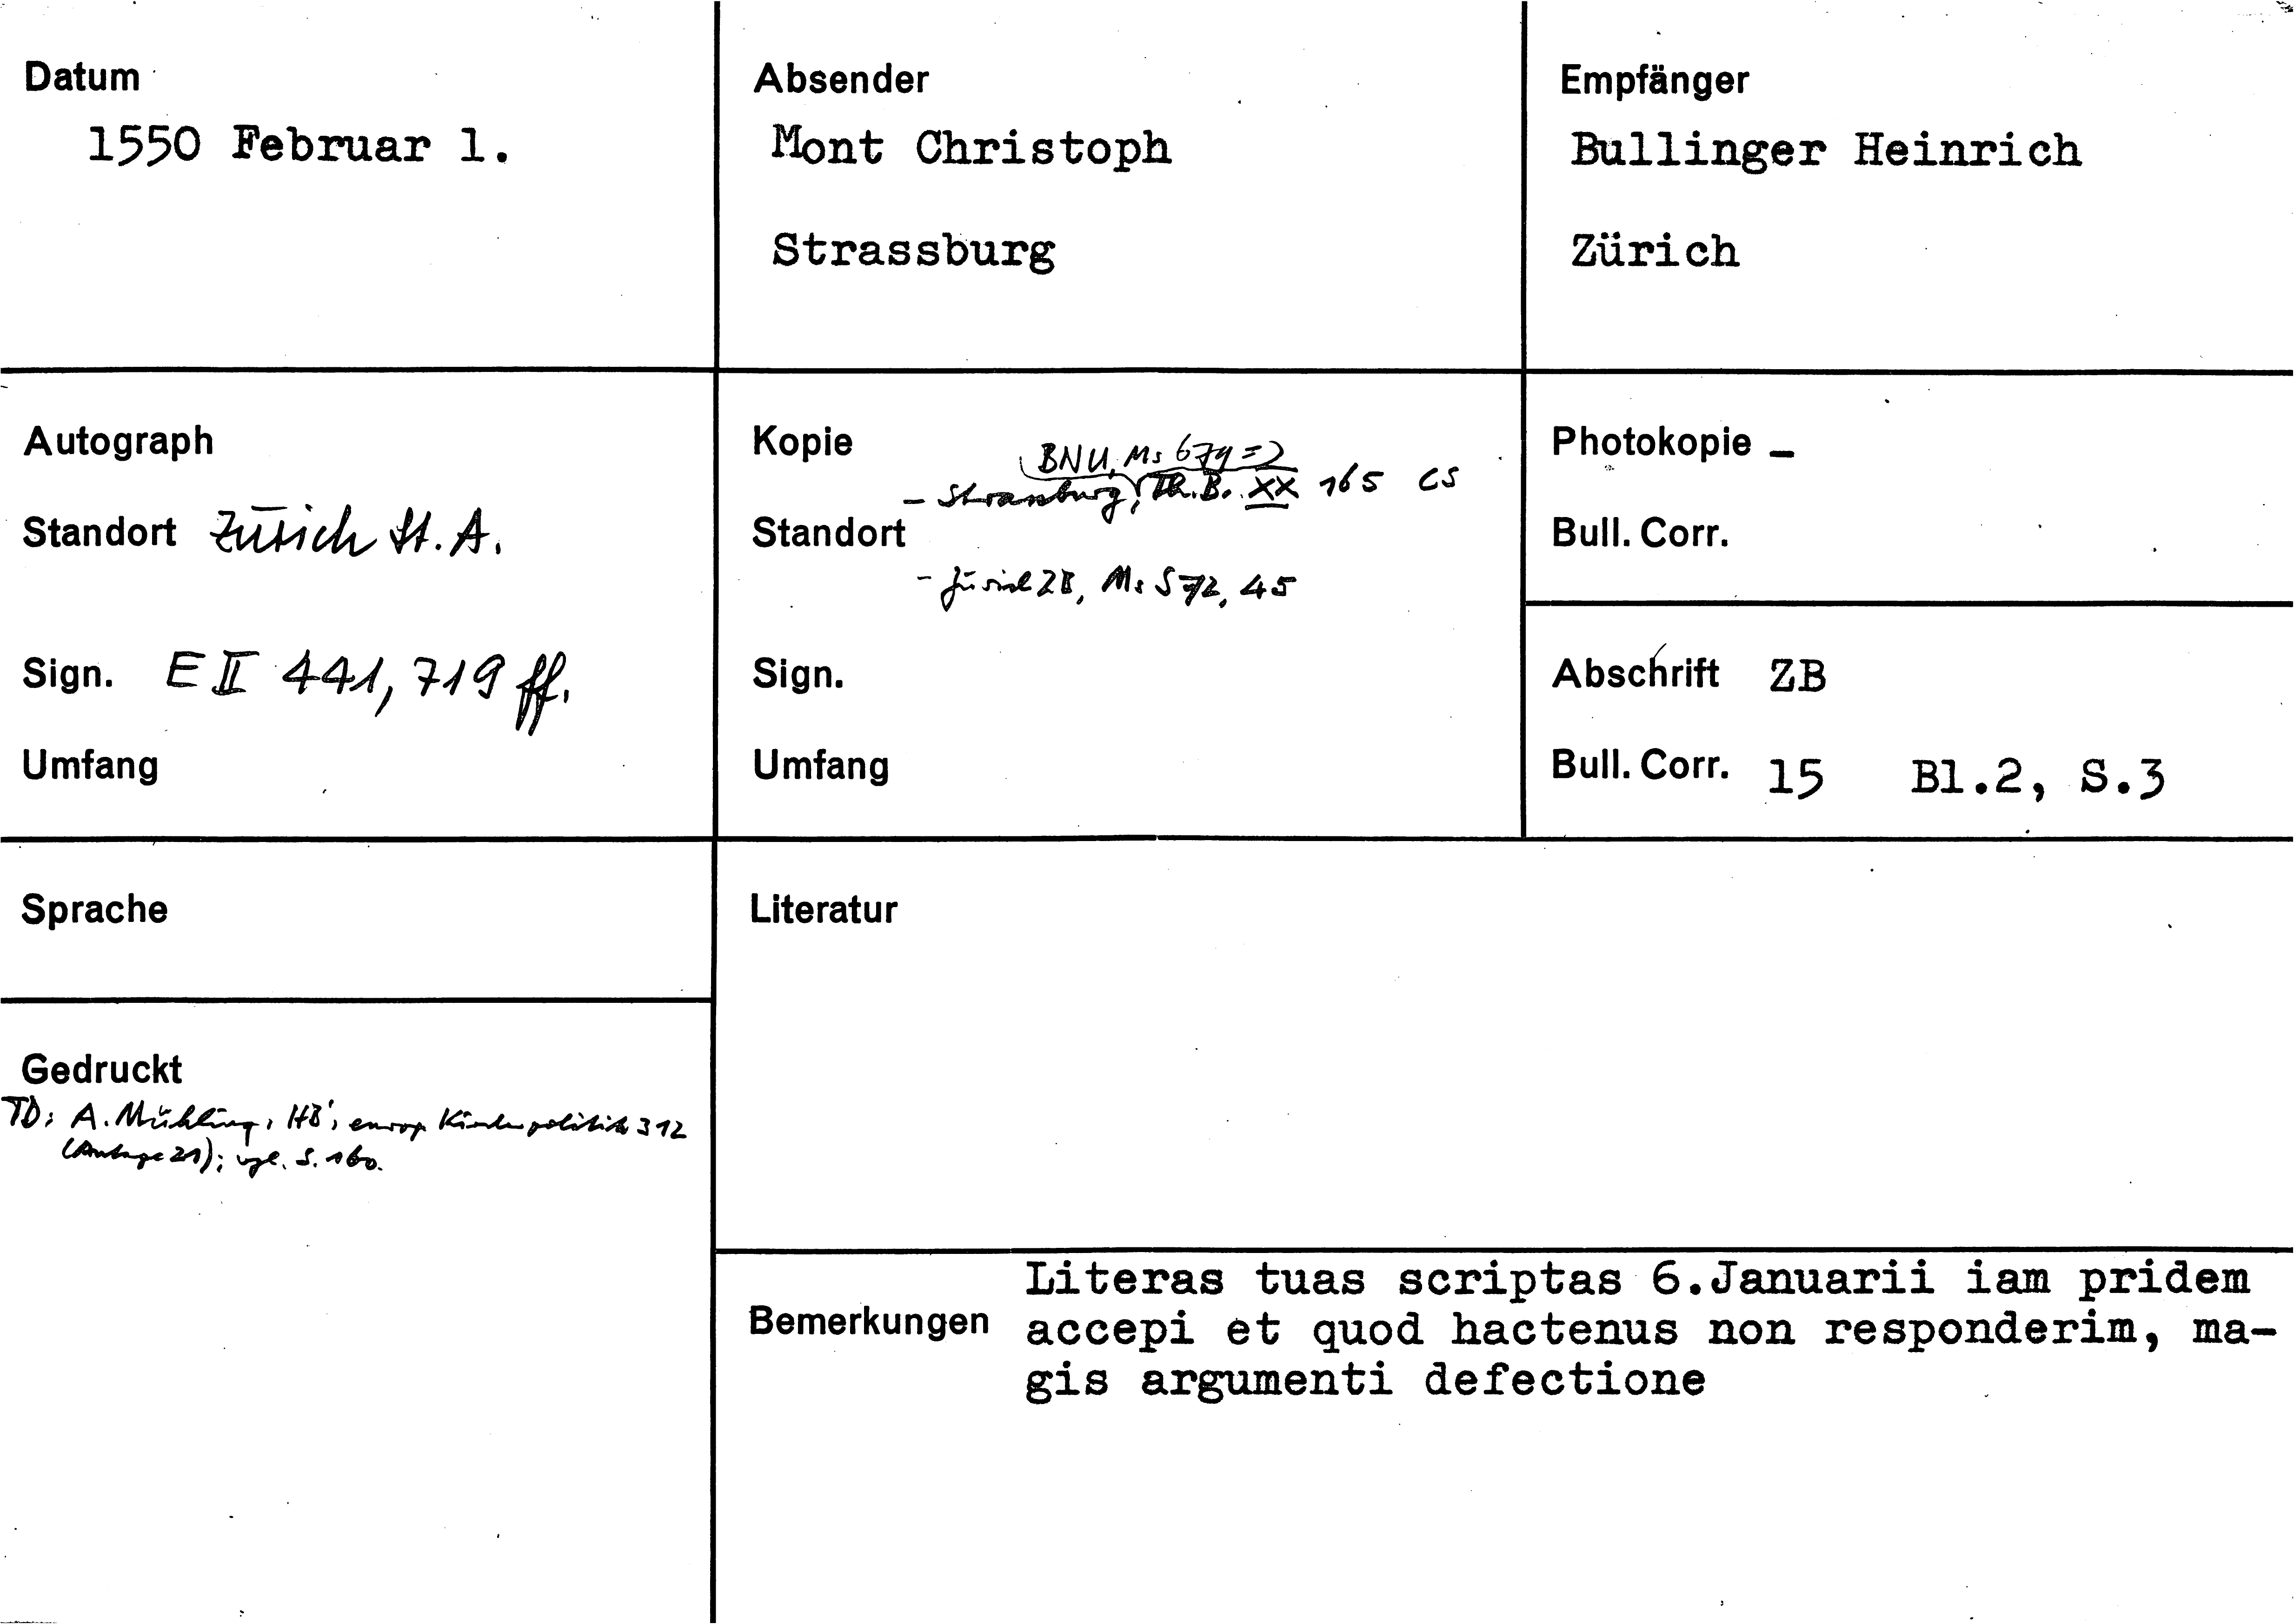 Datum
1550 Februar 1.
Absender
Mont Christoph
Strassburg
Empfänger
Bullinger Heinrich
Zürich
Autograph
Standort Zürich St. A.
Sign. E II 441, 719 ff.
Umfang
Kopie
BNU, Ms 679=2
- Strassburg, Th. B. XX 165 CS
Standort
- Zürich ZB, Ms S 72, 45
Sign.
Umfang
Photokopie –
Bull. Corr.
Abschrift ZB
Bull. Corr. 15 Bl.2, S.3
Sprache
Literatur
Gedruckt
TD: A. Mühling, HB's europ Kirchenpolitik 312
(Anlage 21); vgl. S. 160.
Bemerkungen
Literas tuas scriptas 6.Januarii iam pridem
accepi et quod hactenus non responderim, ma-
gis argumenti defectione